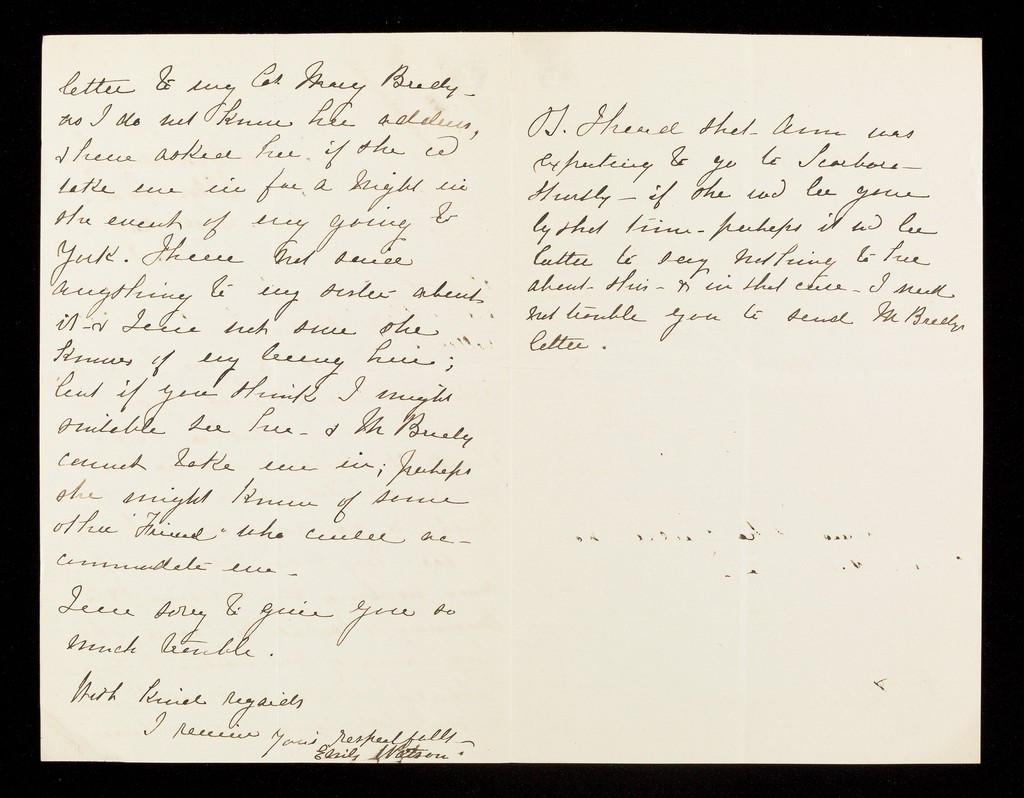 letter to my Cos. Mary Brady –
as I do not know her address,
& have asked her if she cd
take me in for a Night in
the event of my going to
York. I have not said
anything to my sister about
it – & I am not sure she
knows of my being here;
but if you think I might
suitable see her – & M Brady
cannot take me in; perhaps
she might know of some
other "Friend" who could ac-
commodate me –
I am sorry to give you so
much trouble.
With kind regards
I remain yours respectfully
Emily Watson.
PS. I heard that Ann was
expecting to go to Scarboro –
shortly – if she wd be gone
by that time – perhaps it wd be
better to say nothing to her
about this – & in that case – I need
not trouble you to send M Bradys
letter.